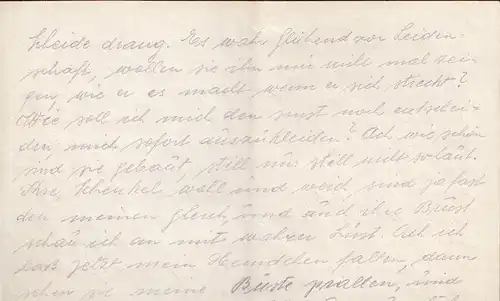 Kleide drang. Er wahr glühend vor Leiden-
schaft, wollen sie ihn mir nicht mal zei-
gen, wie er es macht wenn er sich streckt?
Wie soll ich mich den sonst noch entschei-
den, mich sofort auszukleiden? Ach, wie schön
sind sie gebaut, still nur still nicht so laut.
Ihre Schenkel woll und weich, sind ja fast
den meinen gleich, und auch ihre Büust
schau ich an mit wahrer Lust. Ach ich
laß jetzt mein Hemdchen fallen, dann
sehen sie meine Büste prallen, und